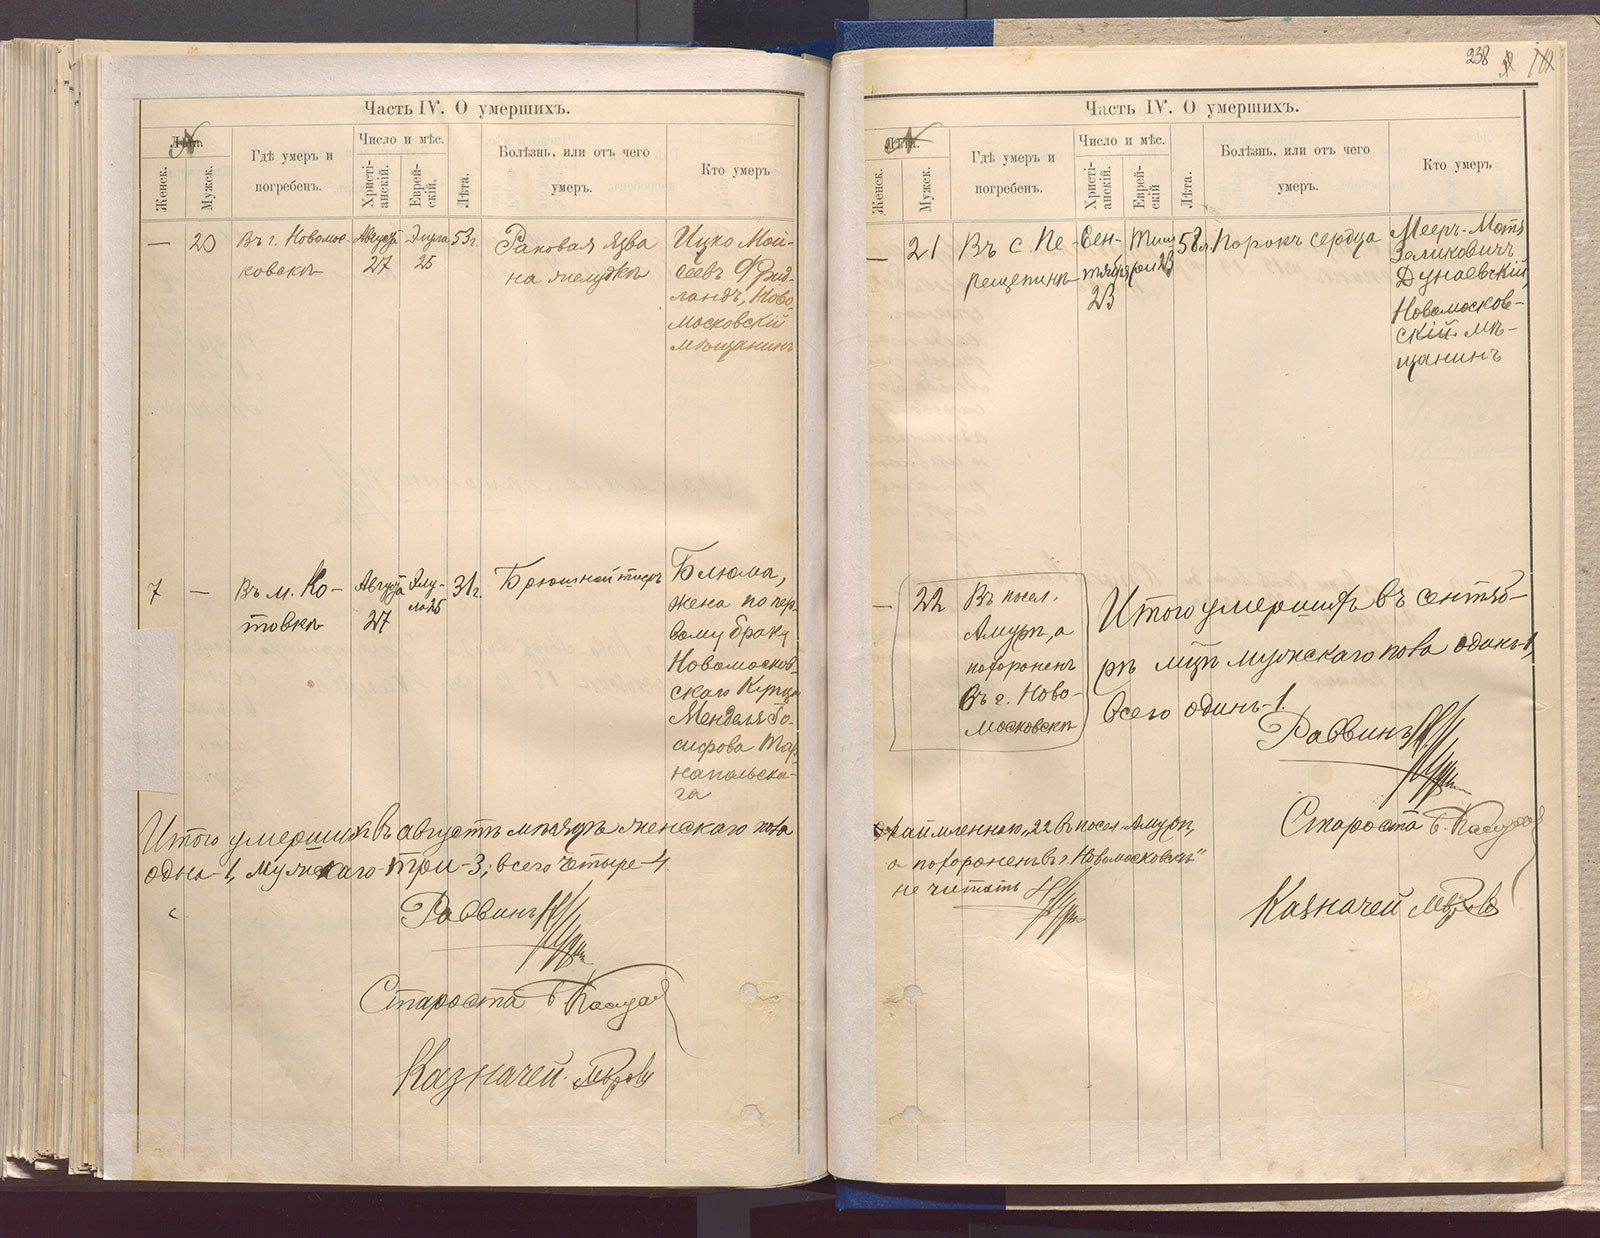 Часть IV. О умершихъ.
Лѣта. №
Женск.
Мужск.
Гдѣ умеръ и
погребенъ.
Число и мѣс.
Христі-
анскій.
Еврей-
скій.
Лѣта.
Болѣзнь, или отъ чего
умеръ.
Кто умеръ
— 20
Въ г. Новомос-
ковскѣ
Августа
27
Элула
25
53 г.
Раковая язва
на желудкѣ
Ицко Мой-
сеевъ Фрид-
ландъ, Ново
московскій
мѣщанинъ
7 —
Въ м. Ко-
товкѣ
Августа
27
Элу-
ла 25
31 г.
Брюшной тифъ
Блюма,
жена по пер
вому браку
Новомосков
скаго Купца
Менделя Іо-
сифова Тар
напольска-
га
Итого умершихъ въ августѣ мѣсяцѣ женскаго пола
одна-1, мужскаго три-3; всего четыре-4.
Раввинъ
Староста
Казначей.
238
Часть IV. О умершихъ.
Лѣта. №
Женск.
Мужск.
Гдѣ умеръ и
погребенъ.
Число и мѣс.
Христі-
анскій.
Еврей-
скій
Лѣта.
Болѣзнь, или отъ чего
умеръ.
Кто умеръ
— 21
Въ с. Пе-
рещепинѣ
Сен-
тября
23
Тиш
рей 23
58 л.
Порокъ сердца
Мееръ-Мотя
Зеликовичъ
Дунаевскій,
Новомосков-
скій мѣ-
щанинъ
— 22
Въ посел.
Амурѣ, а
похороненъ
въ г. Ново-
московскѣ
Итого умершихъ въ сентяб-
рѣ мцѣ мужскаго пола одинъ-1,
всего одинъ-1.
Раввинъ
Староста
Казначей
22 въ посел Амурѣ,
а похороненъ въ г. Новомосковскѣ"
не читать